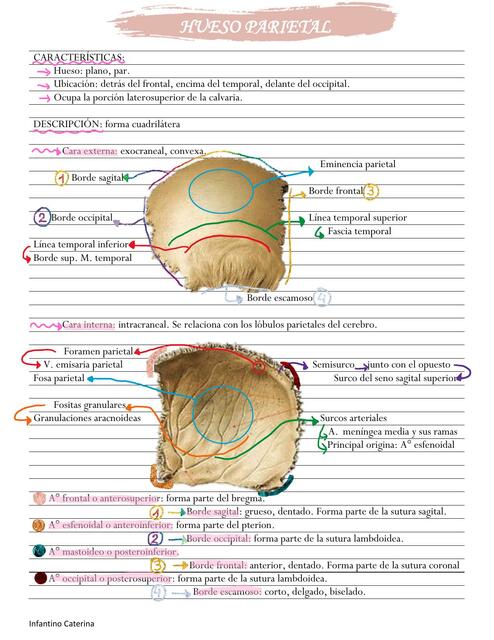 HUESO PARIETAL
CARACTERÍSTICAS:
Hueso: plano, par.
Ubicación: detrás del frontal, encima del temporal, delante del occipital.
Ocupa la porción laterosuperior de la calvaria.
DESCRIPCIÓN: forma cuadrilátera
Cara externa: exocraneal, convexa.
Eminencia parietal
1 Borde sagital
Borde frontal 3
2 Borde occipital
Línea temporal superior
Fascia temporal
Línea temporal inferior
Borde sup. M. temporal
Borde escamoso 4
Cara interna: intracraneal. Se relaciona con los lóbulos parietales del cerebro.
Foramen parietal
V. emisaria parietal
Semisurco junto con el opuesto
Surco del seno sagital superior
Fosa parietal
Fositas granulares
Granulaciones aracnoideas
Surcos arteriales
A. meníngea media y sus ramas
Principal origina: A° esfenoidal
A° frontal o anterosuperior: forma parte del bregma.
1 Borde sagital: grueso, dentado. Forma parte de la sutura sagital.
A° esfenoidal o anteroinferior: forma parte del pterion.
2 Borde occipital: forma parte de la sutura lambdoidea.
A° mastoideo o posteroinferior.
3 Borde frontal: anterior, dentado. Forma parte de la sutura coronal
A° occipital o posterosuperior: forma parte de la sutura lambdoidea.
4 Borde escamoso: corto, delgado, biselado.
Infantino Caterina